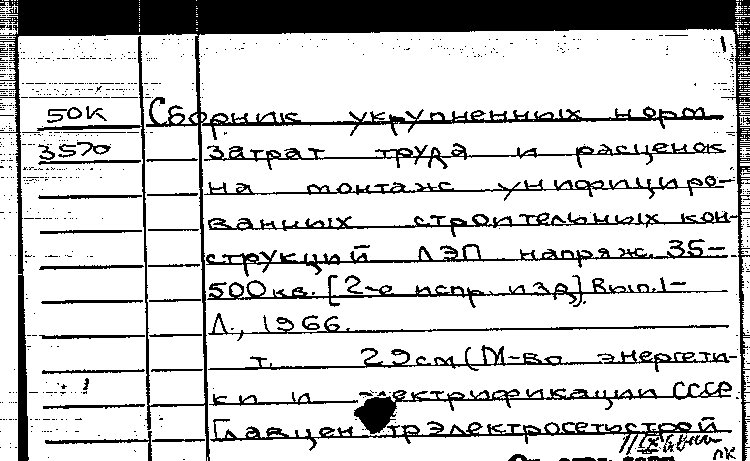 1
50К Сборник укрупненных норм
3570 затрат труда и расценок
на монтаж унифициро-
ванных строительных кон-
струкций ЛЭП напряж. 35-
500 кв. [2-е испр. изд]. Вып. 1-
Л., 1966.
т. 29см (М-во энергети-
ки и электрификации СССР
Главцентрэлектросетьстрой